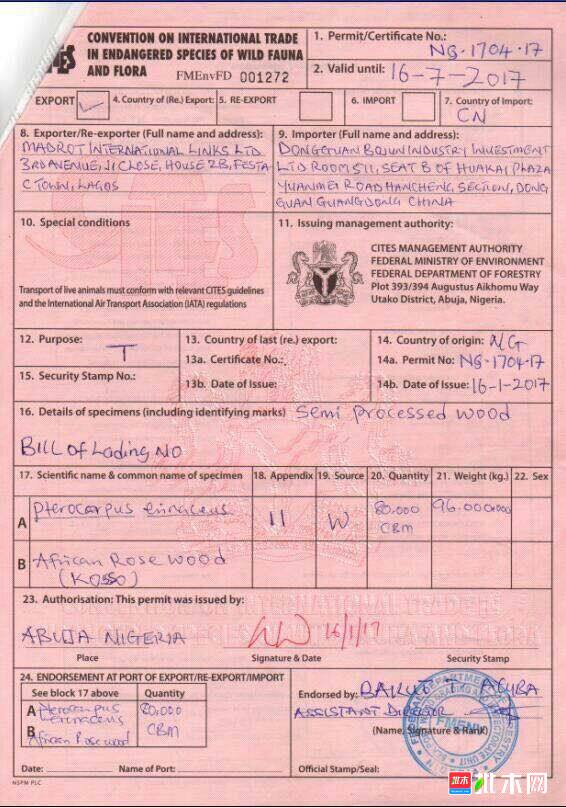 CITES
CONVENTION ON INTERNATIONAL TRADE
IN ENDANGERED SPECIES OF WILD FAUNA
AND FLORA
FMEnvFD 001272
1. Permit/Certificate No.:
NG-1704-17
2. Valid until: 16-7-2017
EXPORT
4. Country of (Re.) Export:
5. RE-EXPORT
6. IMPORT
7. Country of Import:
CN
8. Exporter/Re-exporter (Full name and address):
MADROT INTERNATIONAL LINKS LTD
3RD AVENUE, JI CLOSE, HOUSE 2B, FESTA
C TOWN, LAGOS
9. Importer (Full name and address):
DONGGUAN BOJUN INDUSTRY INVESTMENT
LTD ROOM 511, SEAT B OF HUAKAI PLAZA
YUANMEI ROAD NANCHENG, SECTION, DONG
GUAN GUANGDONG CHINA
10. Special conditions
Transport of live animals must conform with relevant CITES guidelines
and the International Air Transport Association (IATA) regulations
11. Issuing management authority:
CITES MANAGEMENT AUTHORITY
FEDERAL MINISTRY OF ENVIRONMENT
FEDERAL DEPARTMENT OF FORESTRY
Plot 393/394 Augustus Aikhomu Way
Utako District, Abuja, Nigeria.
12. Purpose:
T
13. Country of last (re.) export:
13a. Certificate No.:
13b. Date of Issue:
14. Country of origin: NG
14a. Permit No: NG-1704-17
14b. Date of Issue: 16-1-2017
15. Security Stamp No.:
16. Details of specimens (including identifying marks) Semi Processed Wood
Bill of Lading NO
17. Scientific name & common name of specimen
18. Appendix
19. Source
20. Quantity
21. Weight (kg.)
22. Sex
A Pterocarpus erinaceus
II
W
80.000
CBM
96.000000
B African Rose Wood
(KOSSO)
23. Authorisation: This permit was issued by:
ABUJA NIGERIA
16/1/17
Place
Signature & Date
Security Stamp
24. ENDORSEMENT AT PORT OF EXPORT/RE-EXPORT/IMPORT
See block 17 above
Quantity
A Pterocarpus
erinaceus
80.000
CBM
B African Rosewood
Endorsed by:
ASSISTANT DIRECTOR
(Name, Signature & Rank)
FMENV
Date:
Name of Port:
Official Stamp/Seal:
NSPM PLC
批木网